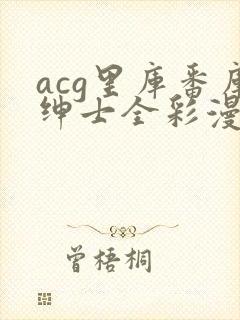 acg里库番库
绅士全彩漫
曾梧桐